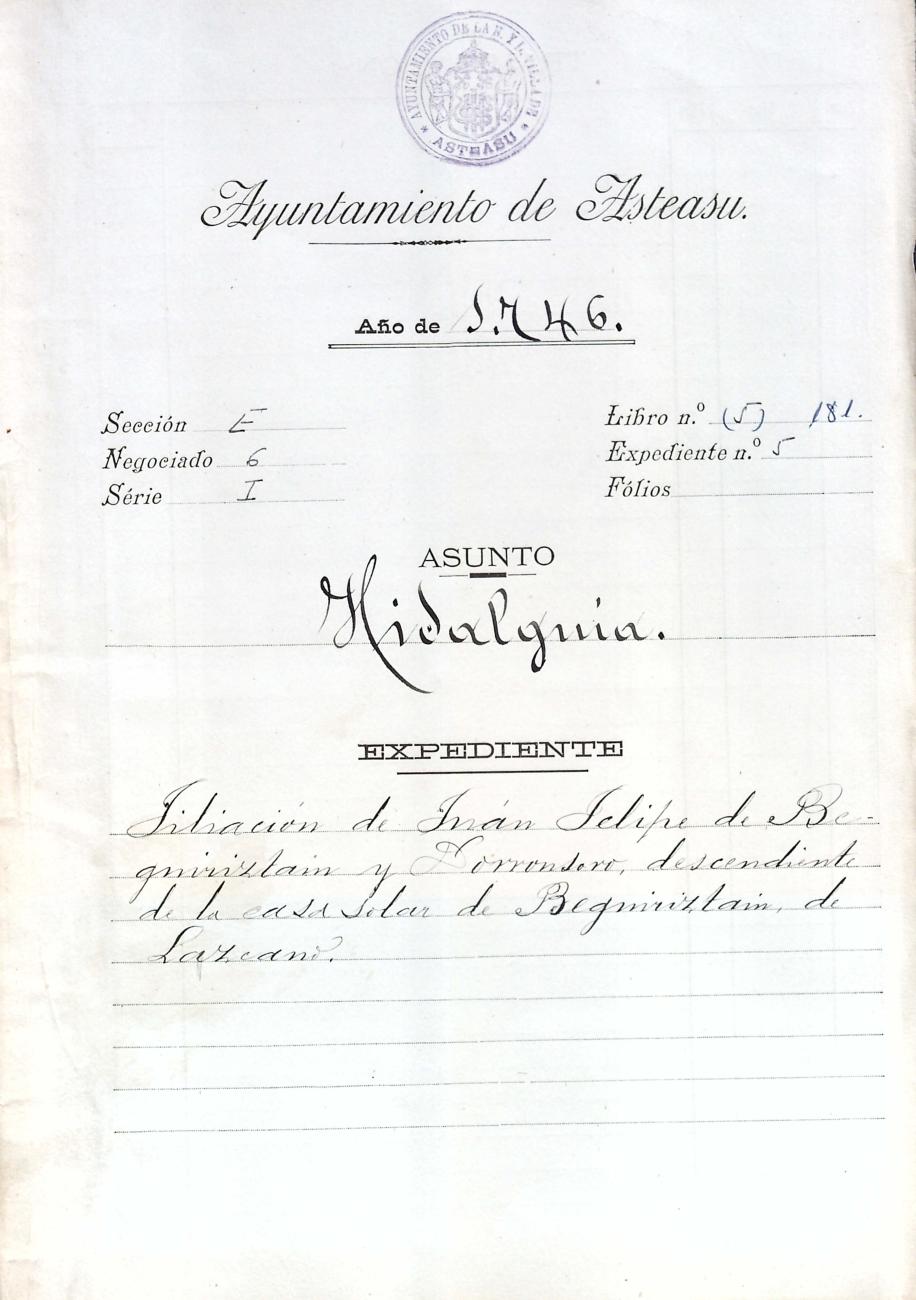 AYUNTAMIENTO DE LA N. Y L. VILLA DE
* ASTEASU *
Ayuntamiento de Asteasu.
Año de 1.746.
Sección E
Negociado 6
Série I
Libro n.º (5) 181.
Expediente n.º 5
Fólios
ASUNTO
Hidalguía.
EXPEDIENTE
Filiación de Juán Felipe de Be-
guiriztain y Dorronsoro, descendiente
de la casa solar de Beguiriztain, de
Lazcano.